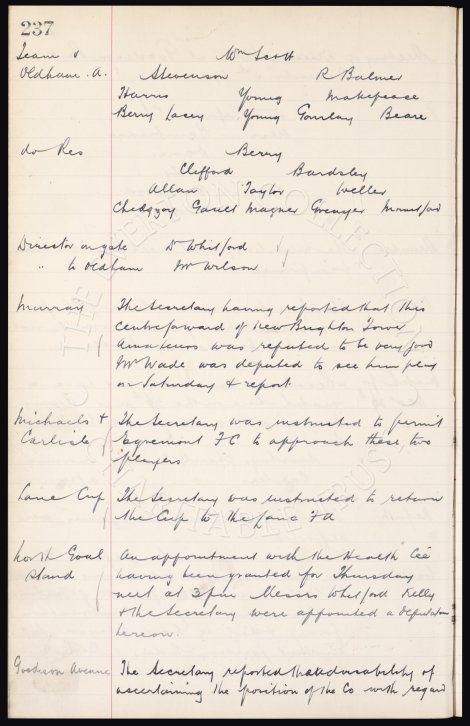 237
Team v Wm Scott
Oldham. A. Stevenson R Balmer
Harris Young Makepeace
Berry Lacey Young Gourlay Beare
do Res Berry
Clifford Bardsley
Allan Taylor Weller
Chedgzoy Gault Magner Greager Mountford
Director on gate Dr Whitford
" to Oldham Mr Wilson
Murray The Secretary having reported that this
centreforward of New Brighton Tower
Amateurs was reputed to be very good
Mr Wade was deputed to see him play
on Saturday & report.
Michaels & The Secretary was instructed to permit
Carlisle Egremont FC to approach these two
players
Lanc Cup The Secretary was instructed to return
the Cup to the Lanc FA
North Goal An appointment with the Health Cee
Stand having been granted for Thursday
next at 3pm Messrs Whitford Kelly
& the Secretary were appointed a deputation
hereon.
Goodison Avenue The Secretary reported the advisability of
ascertaining the position of the Co with regard
THE EVERTON COLLECTION
CHARITABLE TRUST